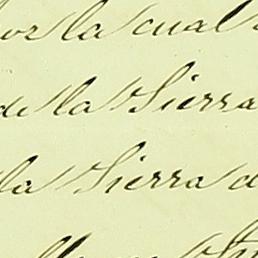 por la cual
de la Sierra
la Sierra d